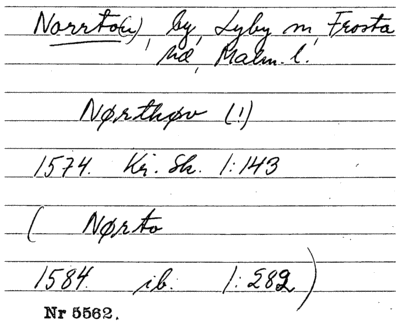 Norrto(u), by, Lyby sn, Frosta
hd, Malm. l.
Nørthov (!)
1574. Kr. Sk. 1:143
( Nørto
1584. ib. 1:282)
Nr 5562.